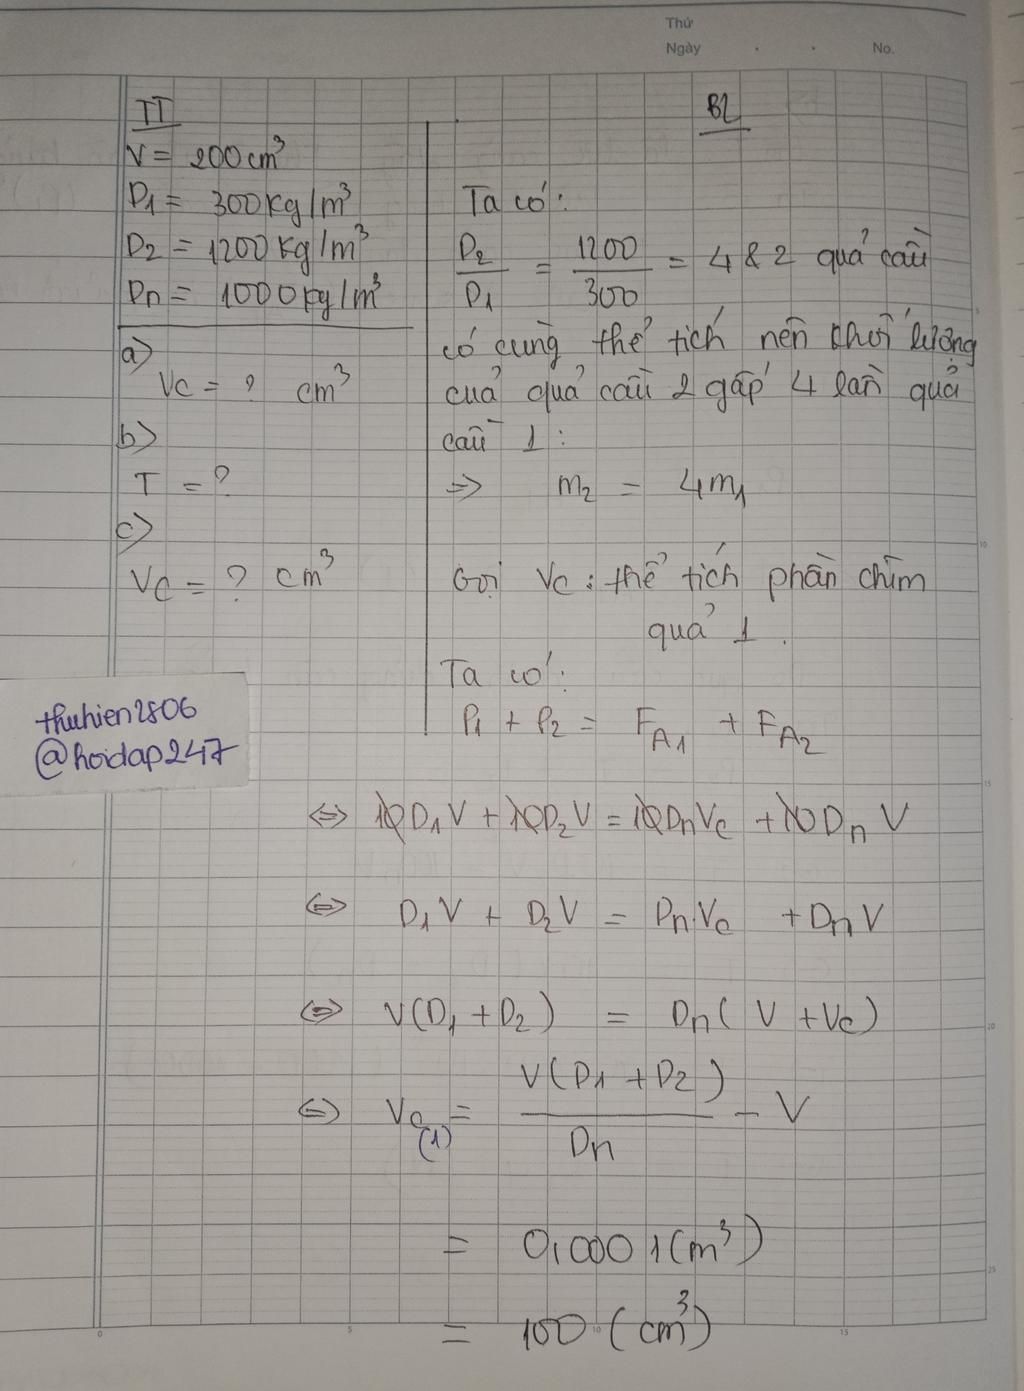 Thứ
Ngày . . No.
TT
V = 200 cm³
D1 = 300 kg/m³
D2 = 1200 kg/m³
Dn = 1000 kg/m³
a)
Vc = ? cm³
b)
T = ?
c)
Vc = ? cm³
BL
Ta có:
D2/D1 = 1200/300 = 4 & 2 quả cầu
có cùng thể tích nên khối lượng
cuả quả cầu 2 gấp 4 lần quả
cầu 1:
=> m2 = 4m1
Gọi Vc: thể tích phần chìm
quả 1.
Ta có:
P1 + P2 = FA1 + FA2
thuhien2806
@hoidap247
⇔ 10D1V + 10D2V = 10DnVc + 10DnV
⇔ D1V + D2V = Dn.Vc + DnV
⇔ V(D1 + D2) = Dn(V + Vc)
⇔ Vc(1) = V(D1 + D2)/Dn - V
= 0,0001 (m³)
= 100 (cm³)
5
10
15
20
25
0 5 10 15